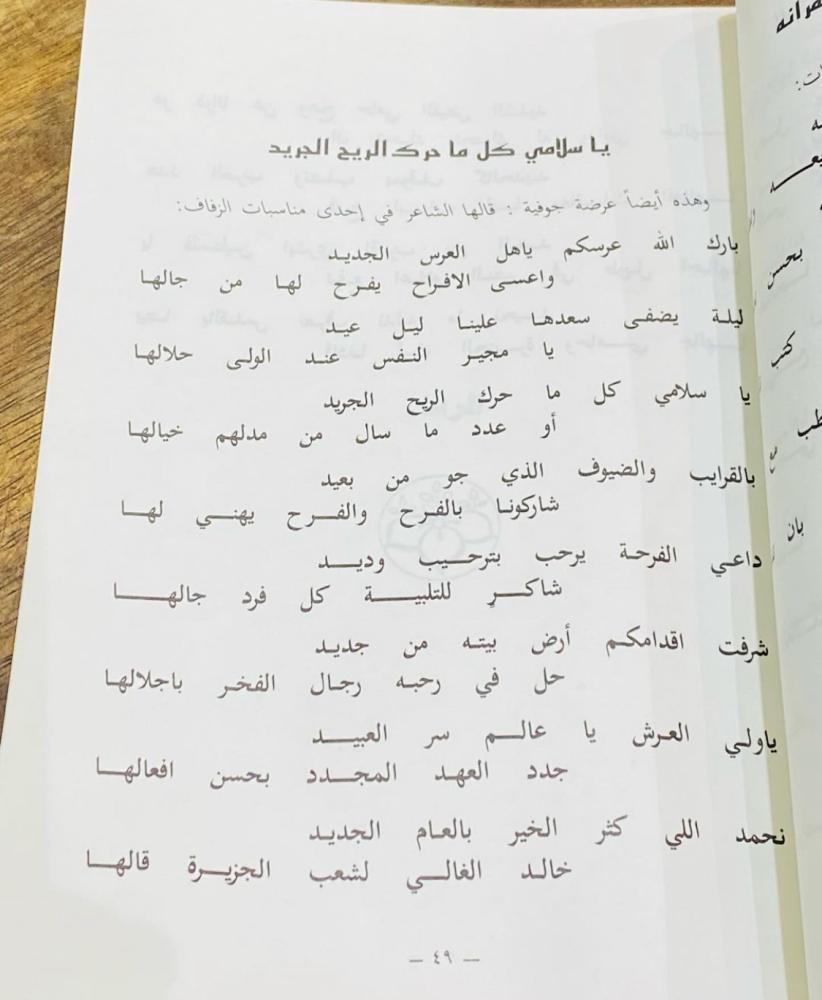 يا سلامي كل ما حرك الريح الجريد
وهذه أيضاً عرضة جوفية : قالها الشاعر في إحدى مناسبات الزفاف:
بارك الله عرسكم ياهل العرس الجديد
واعسى الافراح يفرح لها من جالها
ليلة يضفى سعدها علينا ليل عيد
يا مجير النفس عند الولى حلالها
يا سلامي كل ما حرك الريح الجريد
أو عدد ما سال من مدلهم خيالها
بالقرايب والضيوف الذي جو من بعيد
شاركونا بالفرح والفرح يهني لها
داعي الفرحة يرحب بترحيب وديد
شاكرٍ للتلبية كل فرد جالها
شرفت اقدامكم أرض بيته من جديد
حل في رحبه رجال الفخر باجلالها
ياولي العرش يا عالم سر العبيد
جدد العهد المجدد بحسن افعالها
نحمد اللي كثر الخير بالعام الجديد
خالد الغالي لشعب الجزيرة قالها
— ٤٩ —
بحسن
كتب
بان